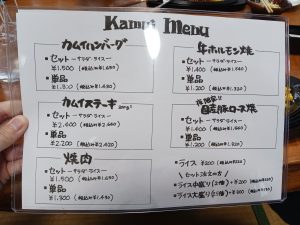 Kamui Menu
カムイハンバーグ
・セット -サラダ・ライス-
¥1,500 (税込み¥1,650)
・単品
¥1,300
カムイステーキ 200g
・セット -サラダ・ライス-
¥2,400 (税込み¥2,640)
・単品
¥2,200 (税込み¥2,420)
焼肉
・セット -サラダ・ライス-
¥1,500 (税込み¥1,650)
・単品
¥1,300 (税込み¥1,430)
牛ホルモン焼
・セット -サラダ・ライス-
¥1,400
・単品
¥1,200 (税込み¥1,320)
豚ロース焼
・セット -サラダ・ライス-
¥1,400
・単品
¥1,200
・ライス ¥200
セット注文の方
・ライス中盛り
・ライス大盛り